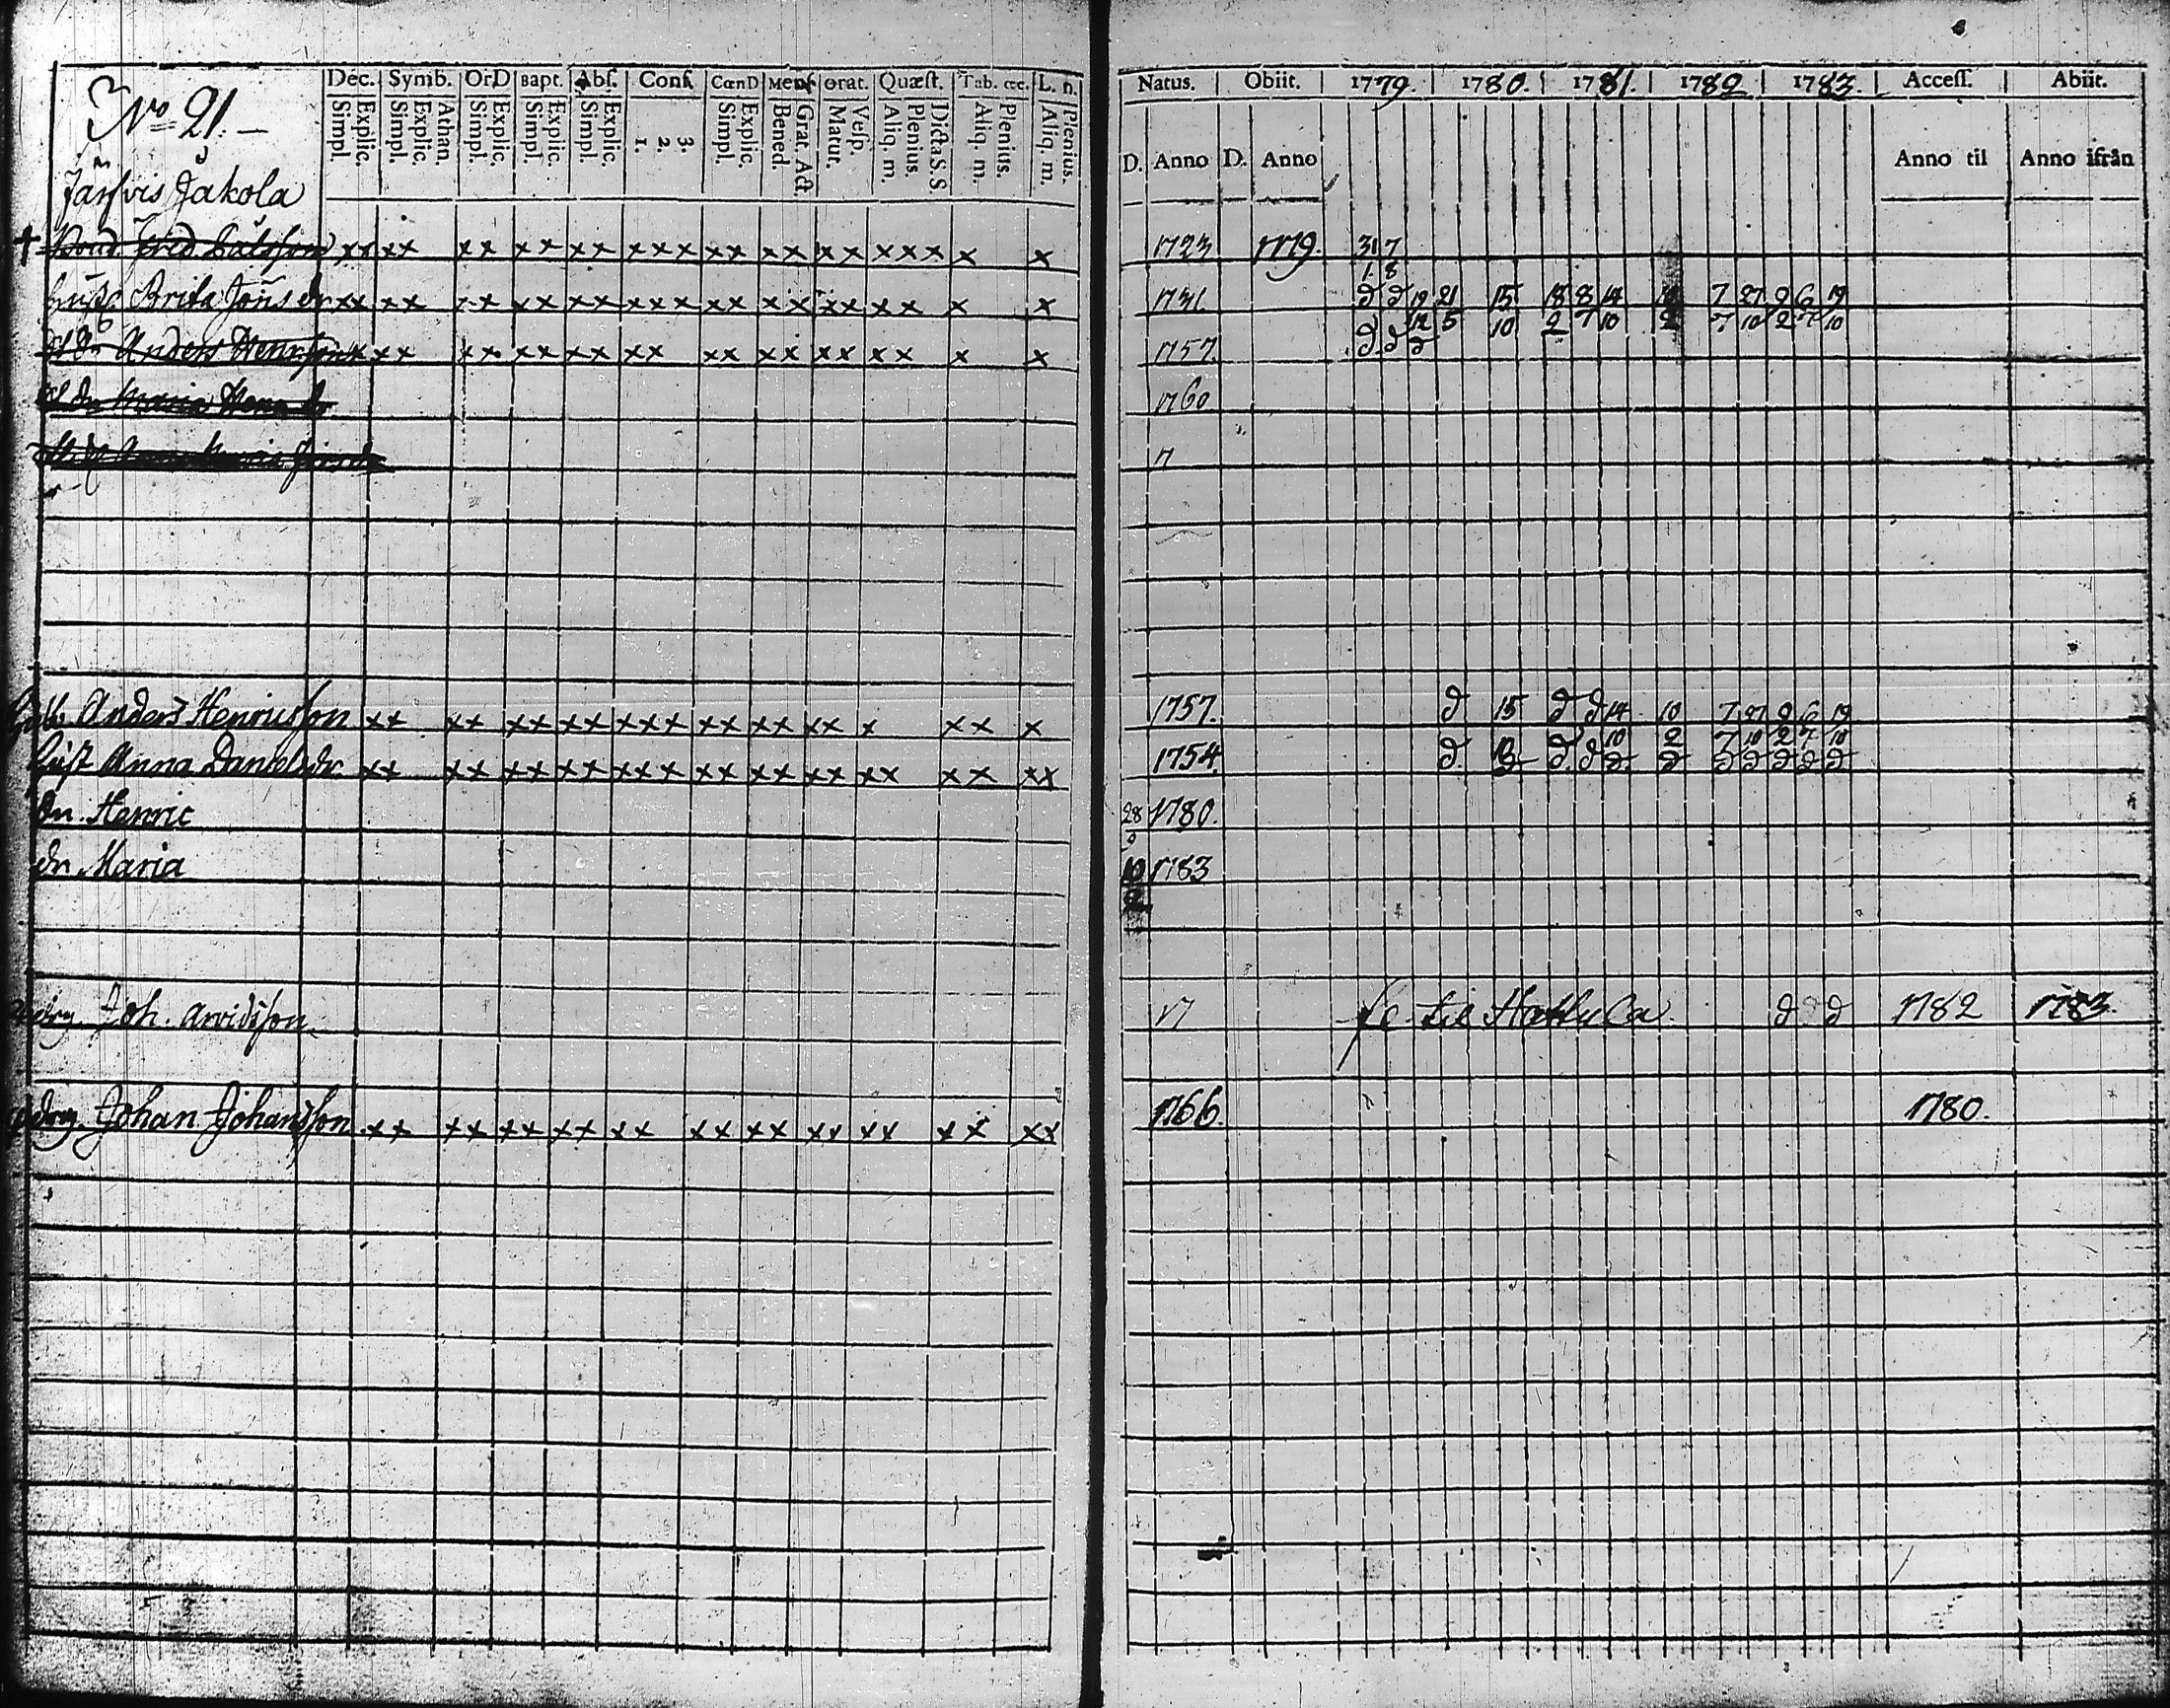 Dec. Symb. OrD Bapt. Abſ. Conf. CœnD Menſ Orat. Quæſt. Tab. œc. L. n.
Explic. Simpl. Athan. Explic. Simpl. Explic. Simpl. Explic. Simpl. Explic. Simpl. 3. 2. 1. Explic. Simpl. Grat. Act. Bened. Veſp. Matur. Dicta S. S Plenius. Aliq. m. Plenius. Aliq. m. Plenius. Aliq. m.
Natus. Obiit. 1779. 1780. 1781. 1782 1783. Acceſſ. Abiit.
D. Anno D. Anno Anno til Anno ifrån
No 21.
Jakola
† Bond. xx xx xx xx xx xxx xx xx xx xxx x x 1723 1779. 31 7
1. 8
Brita Jöns dr xx xx xx xx xx xxx xx xx xx xx x x 1731. d d 19 21 15 18 8 14 7 27 9 6 19
12 5 10 2 7 10 2 7 10 2 7 10
Anders xx xx xx xx xx xx xx xx xx x x 1757. d d d
Maria 1760
17
Anders Henricsson xx xx xx xx xxx xx xx xx x xx x 1757. d 15 d d 14 10 7 27 9 6 19
10 2 7 10 2 7 10
hust Anna Danielsdr. xx xx xx xx xxx xx xx xx xx xx xx 1754. d. d d d d d d d d d
dn. Henric 28 1780.
9
dr. Maria 10 1783
2
drg. Joh. Arvidsson 17 til d d 1782 1783.
drg. Johan Johansson xx xx xx xx xx xx xx xx xx xx xx 1766. 1780.